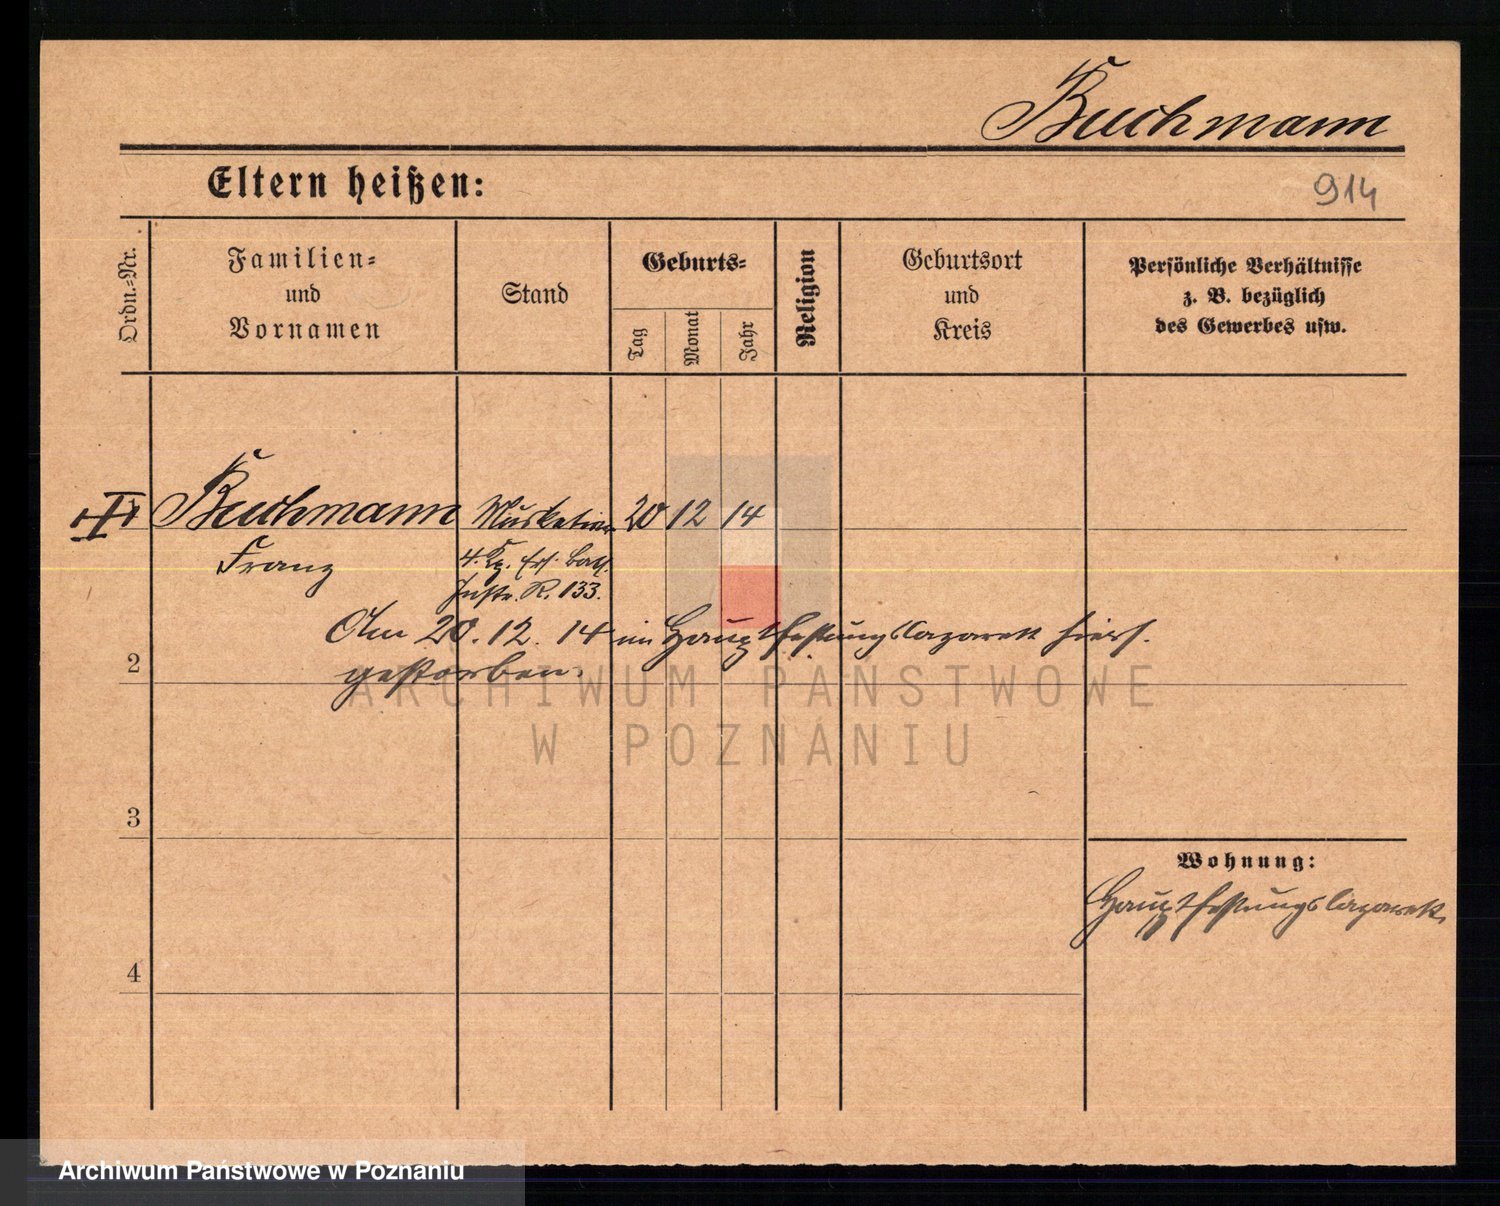 Buchmann
Eltern heißen:
914
Ordn.-Nr.
Familien-
und
Vornamen
Stand
Geburts-
Tag
Monat
Jahr
Religion
Geburtsort
und
Kreis
Persönliche Verhältnisse
z. B. bezüglich
des Gewerbes usw.
Buchmann Musketier 20 12 14
Franz 4. Kp. Ers. Batl.
Inftr. R. 133.
Am 20. 12. 14 im Hauptfestungslazarett hiers.
2
gestorben.
ARCHIWUM PAŃSTWOWE
W POZNANIU
3
Wohnung:
Hauptfestungslazarett
4
Archiwum Państwowe w Poznaniu